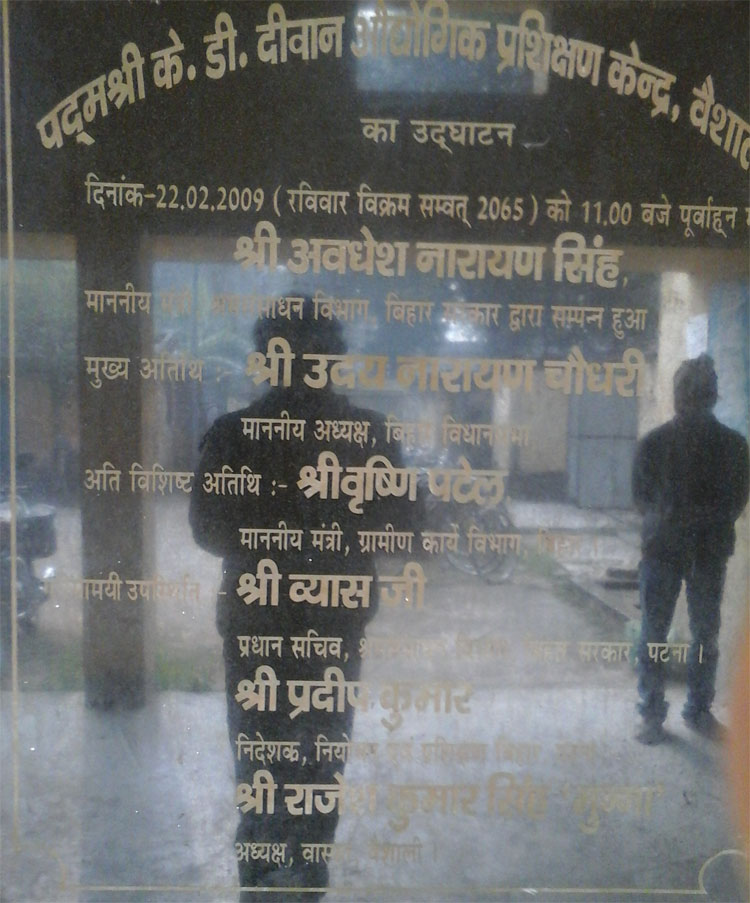 पद्मश्री के. डी. दीवान औद्योगिक प्रशिक्षण केन्द्र,
का उद्घाटन
दिनांक-22.02.2009 ( रविवार विक्रम सम्वत् 2065 ) को 11.00 बजे पूर्वाह्न
श्री अवधेश नारायण सिंह,
माननीय विभाग, बिहार सरकार द्वारा सम्पन्न हुआ
मुख्य अतिथि श्री उदय नारायण चौधरी
माननीय अध्यक्ष, बिहार विधानसभा
अति विशिष्ट अतिथि :- श्रीवृष्णि पटेल,
माननीय मंत्री, ग्रामीण कार्य विभाग,
श्री व्यास जी
प्रधान सचिव, सरकार, पटना ।
श्री प्रदीप कुमार
निदेशक,
श्री राजेश कुमार सिंह 'मुन्ना'
अध्यक्ष, वैशाली